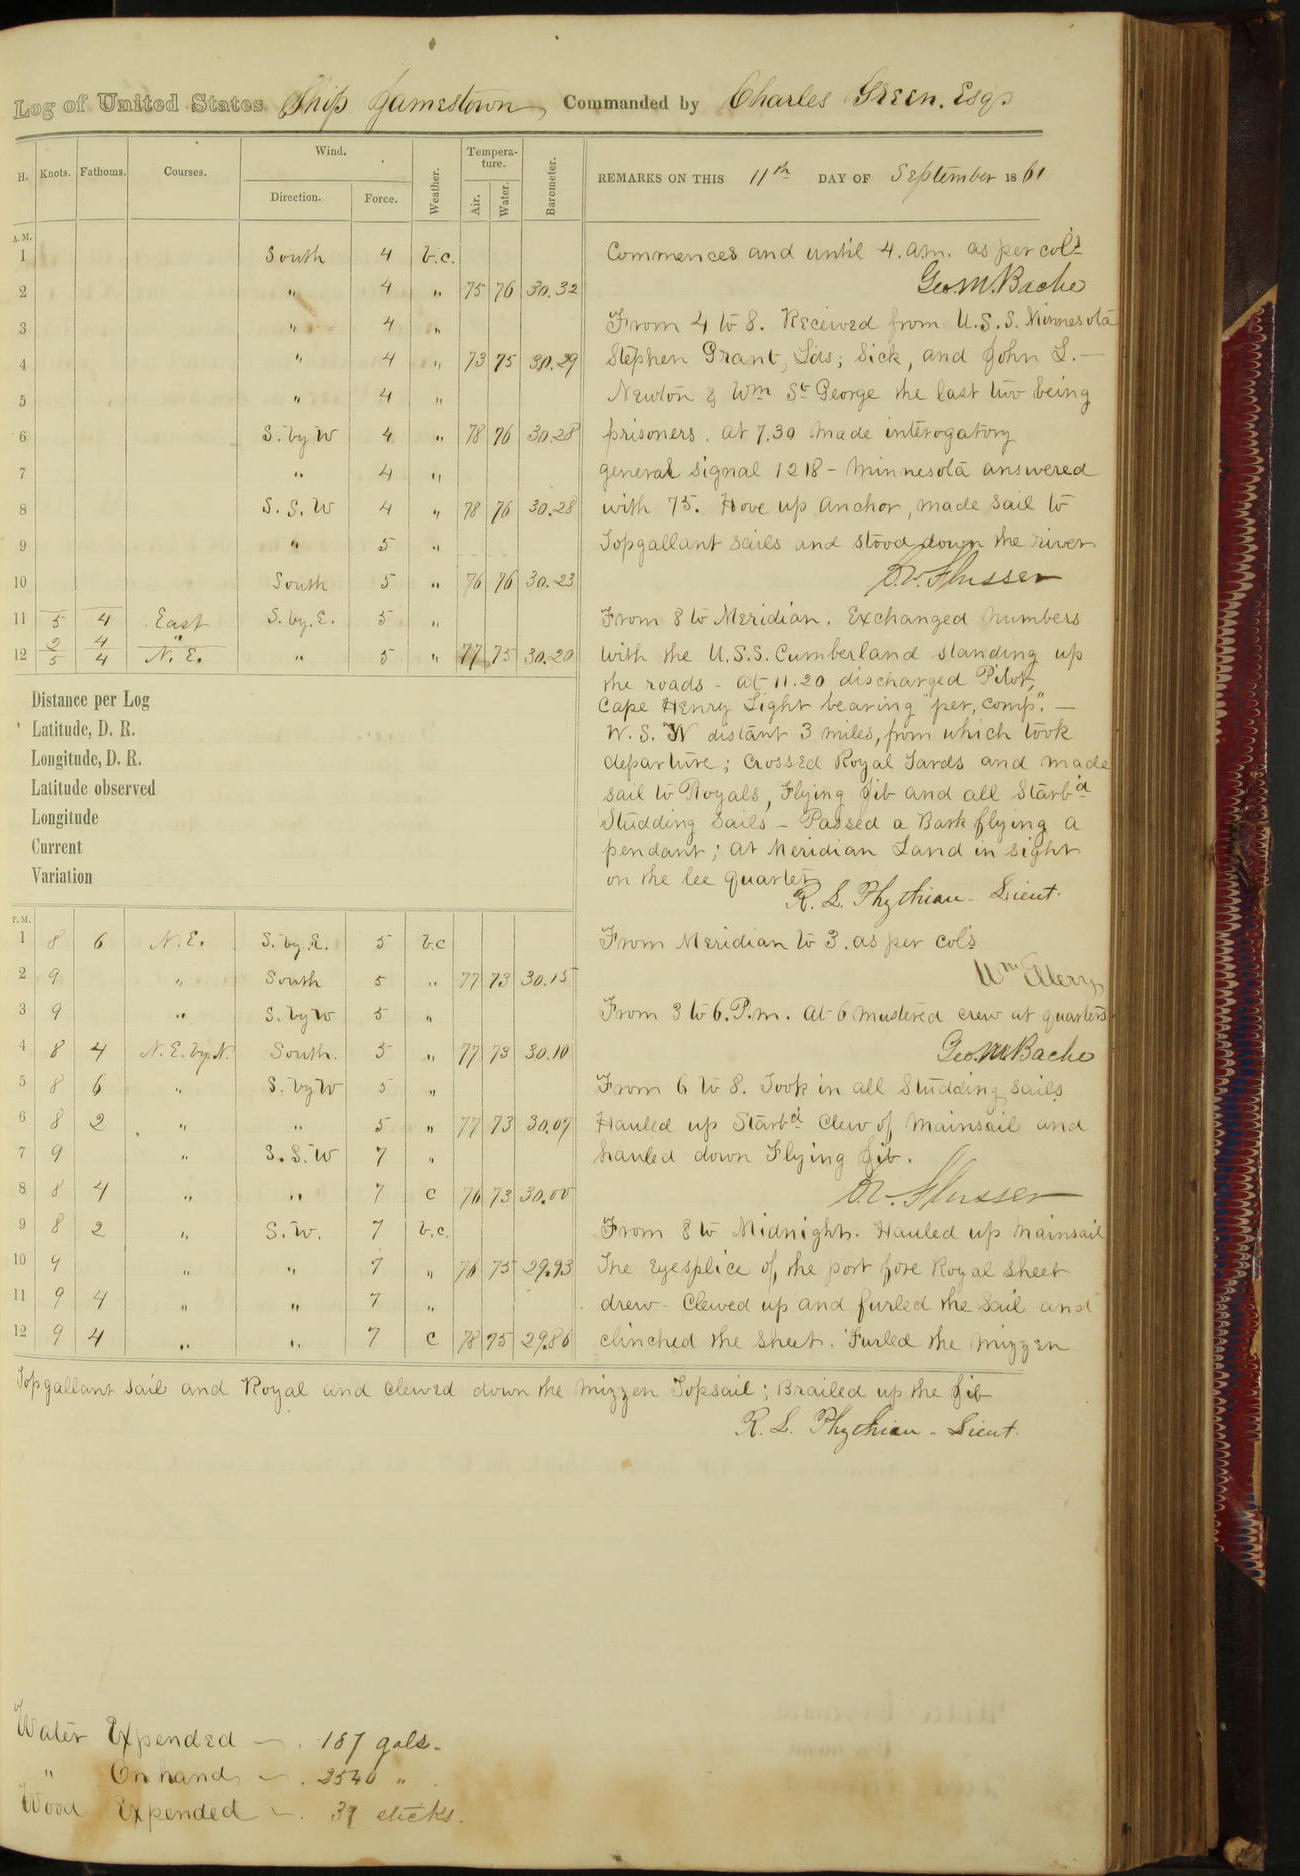 Log of United States Ship Jamestown, Commanded by Charles Green. Esqr
H. Knots. Fathoms. Courses. Wind. Direction. Force. Weather. Tempera-ture. Air. Water. Barometer. REMARKS ON THIS 11th DAY OF September 1861
A.M.
1 South 4 b.c.
2 " 4 " 75 76 30.32
3 " 4 "
4 " 4 " 73 75 30.29
5 " 4 "
6 S. by W 4 " 78 76 30.28
7 " 4 "
8 S. S. W 4 " 78 76 30.28
9 " 5 "
10 South 5 " 76 76 30.23
11 5 4 East S. by. E. 5 "
2 4 "
12 5 4 N. E. " 5 " 77 75 30.20
Commences and until 4. am. as per cols
Geo. M. Bache
From 4 to 8. Received from U.S.S. Minnesota
Stephen Grant, Lds; Sick, and John L. —
Newton & Wm St George the last two being
prisoners. at 7.30 made interogatory
general signal 1218 - Minnesota answered
with 75. Hove up anchor, made sail to
Topgallant sails and stood down the river
C. W. Flusser
From 8 to Meridian. Exchanged numbers
with the U.S.S. Cumberland standing up
the roads - at 11.20 discharged Pilot,
Cape Henry Light bearing "per, comp". —
W. S. W distant 3 miles, from which took
departure; crossed Royal Yards and made
sail to Royals, Flying Jib and all Starbd
Studding Sails - Passed a Bark flying a
pendant; at Meridian Land in sight
on the lee quarter
R. L. Phythian - Lieut.
Distance per Log
Latitude, D. R.
Longitude, D. R.
Latitude observed
Longitude
Current
Variation
P.M.
1 8 6 N. E. S. by. E. 5 b.c
2 9 " South 5 " 77 73 30.15
3 9 " S. by W 5 "
4 8 4 N. E. by. N. South. 5 " 77 73 30.10
5 8 6 " S. by W 5 "
6 8 2 " " 5 " 77 73 30.07
7 9 " S. S. W 7 "
8 8 4 " " 7 c 76 73 30.00
9 8 2 " S. W. 7 b.c.
10 9 " " 7 " 76 75 29.93
11 9 4 " " 7 "
12 9 4 " " 7 c 78 75 29.86
From Meridian to 3. as per cols
Wm Ellery
From 3 to 6. P.m. at 6 mustered crew at quarters
Geo. M. Bache
From 6 to 8. Took in all Studding sails
Hauled up Starbd clew of Mainsail and
hauled down Flying Jib.
C. W. Flusser
From 8 to Midnight. Hauled up Mainsail
The eyesplice of the port fore Royal sheet
drew - Clewed up and furled the sail and
clinched the sheet. Furled the Mizzen
Topgallant sail and Royal and clewed down the mizzen Topsail; Brailed up the Jib
R. L. Phythian - Lieut.
Water Expended — . 187 gals.
" On hand — . 2540 "
Wood Expended — . sticks.